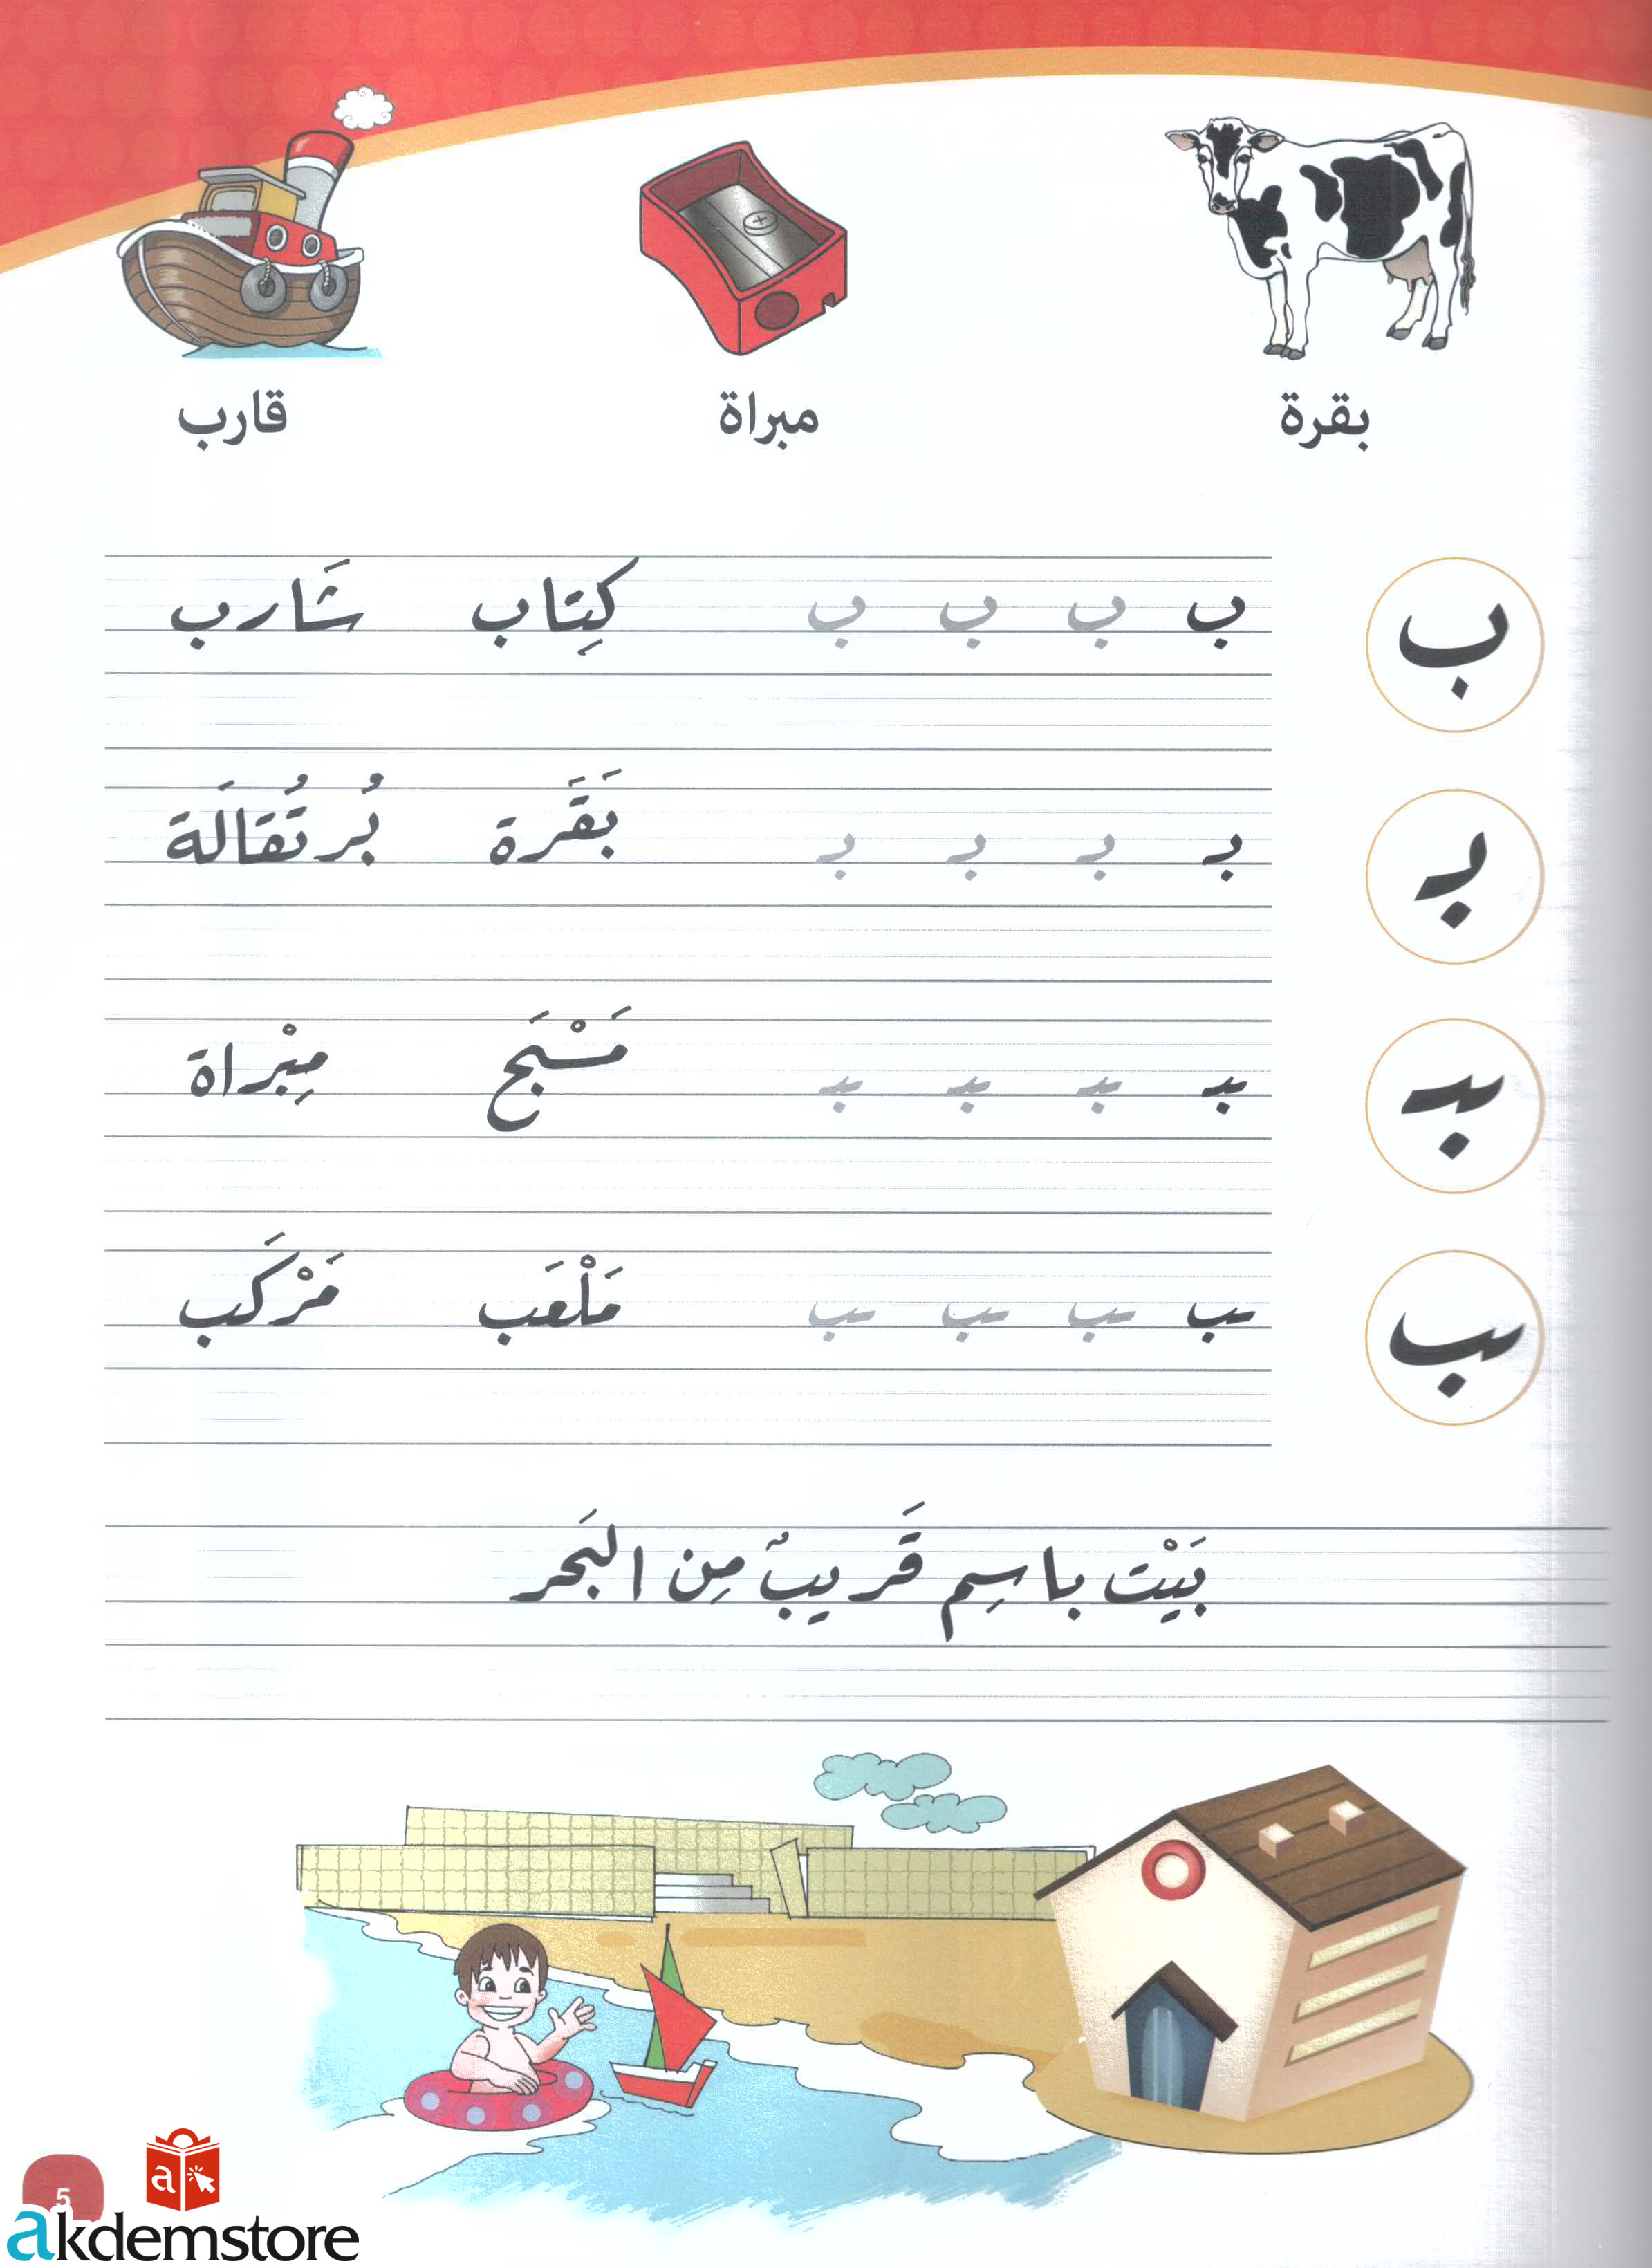 بقرة مبراة قارب
ب ب ب ب ب كِتاب شَارب
بـ بـ بـ بـ بـ بَقَرة بُرتُقالَة
ـبـ ـبـ ـبـ ـبـ ـبـ مَسْبَح مِبْراة
ـب ـب ـب ـب ـب مَلْعَب مَرْكَب
بَيْت باسِم قَريبٌ مِن البَحر
5
a
akdemstore